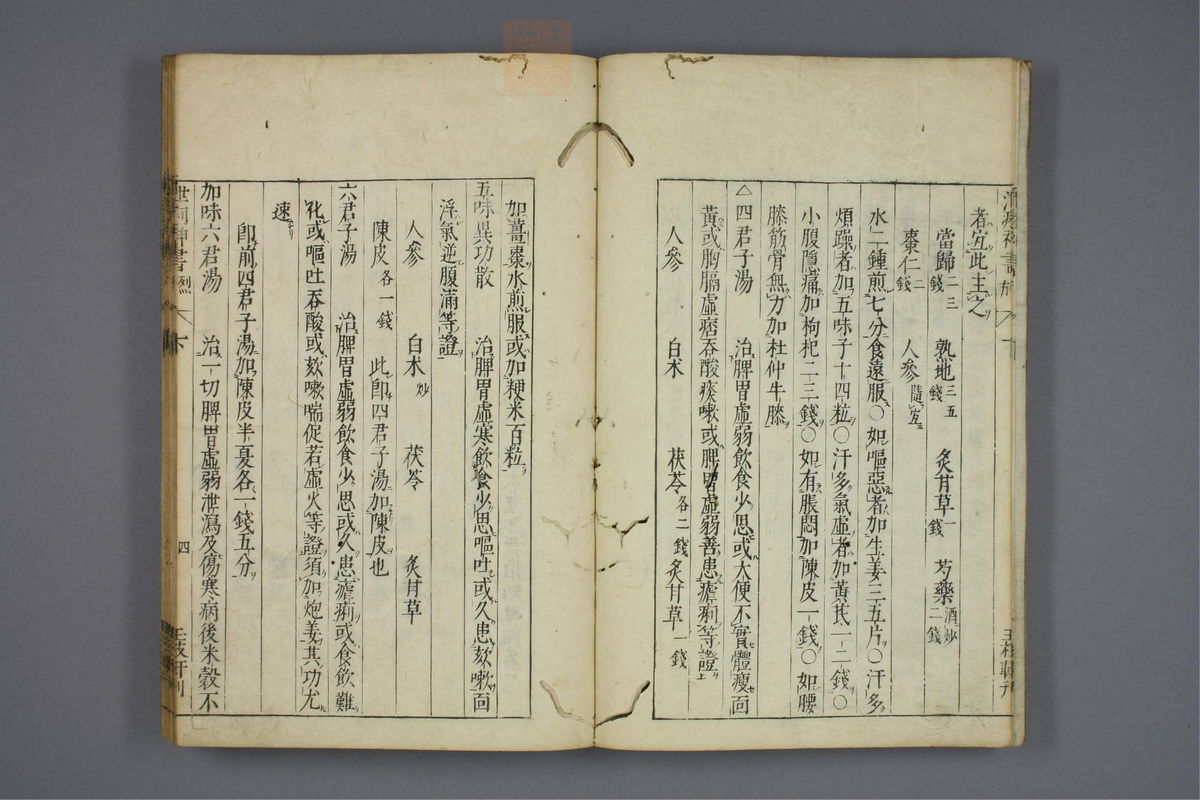 者宜此主之
當歸二三錢 熟地三五錢 炙甘草一錢 芍藥酒炒二錢
棗仁二錢 人參隨宜
水二鍾煎七分食遠服○如嘔惡者加生姜三五片○汗多
煩躁者加五味子十四粒○汗多氣虛者加黃芪一二錢○
小腹隱痛加枸杞二三錢○如有脹悶加陳皮一錢○如腰
膝筋骨無力加杜仲牛膝
△四君子湯 治脾胃虛弱飲食少思或大便不實體瘦面
黃或胸膈虛痞吞酸痰嗽或脾胃虛弱善患瘧痢等證
人參 白朮 茯苓各二錢 炙甘草一錢
加薑棗水煎服或加粳米百粒
五味異功散 治脾胃虛寒飲食少思嘔吐或久患欬嗽面
浮氣逆腹滿等證
人參 白朮炒 茯苓 炙甘草
陳皮各一錢 此即四君子湯加陳皮也
六君子湯 治脾胃虛弱飲食少思或久患瘧痢或食飲難
化或嘔吐吞酸或欬嗽喘促若虛火等證須加炮姜其功尤
速
即前四君子湯加陳皮半夏各一錢五分
加味六君湯 治一切脾胃虛弱泄瀉及傷寒病後米穀不
四